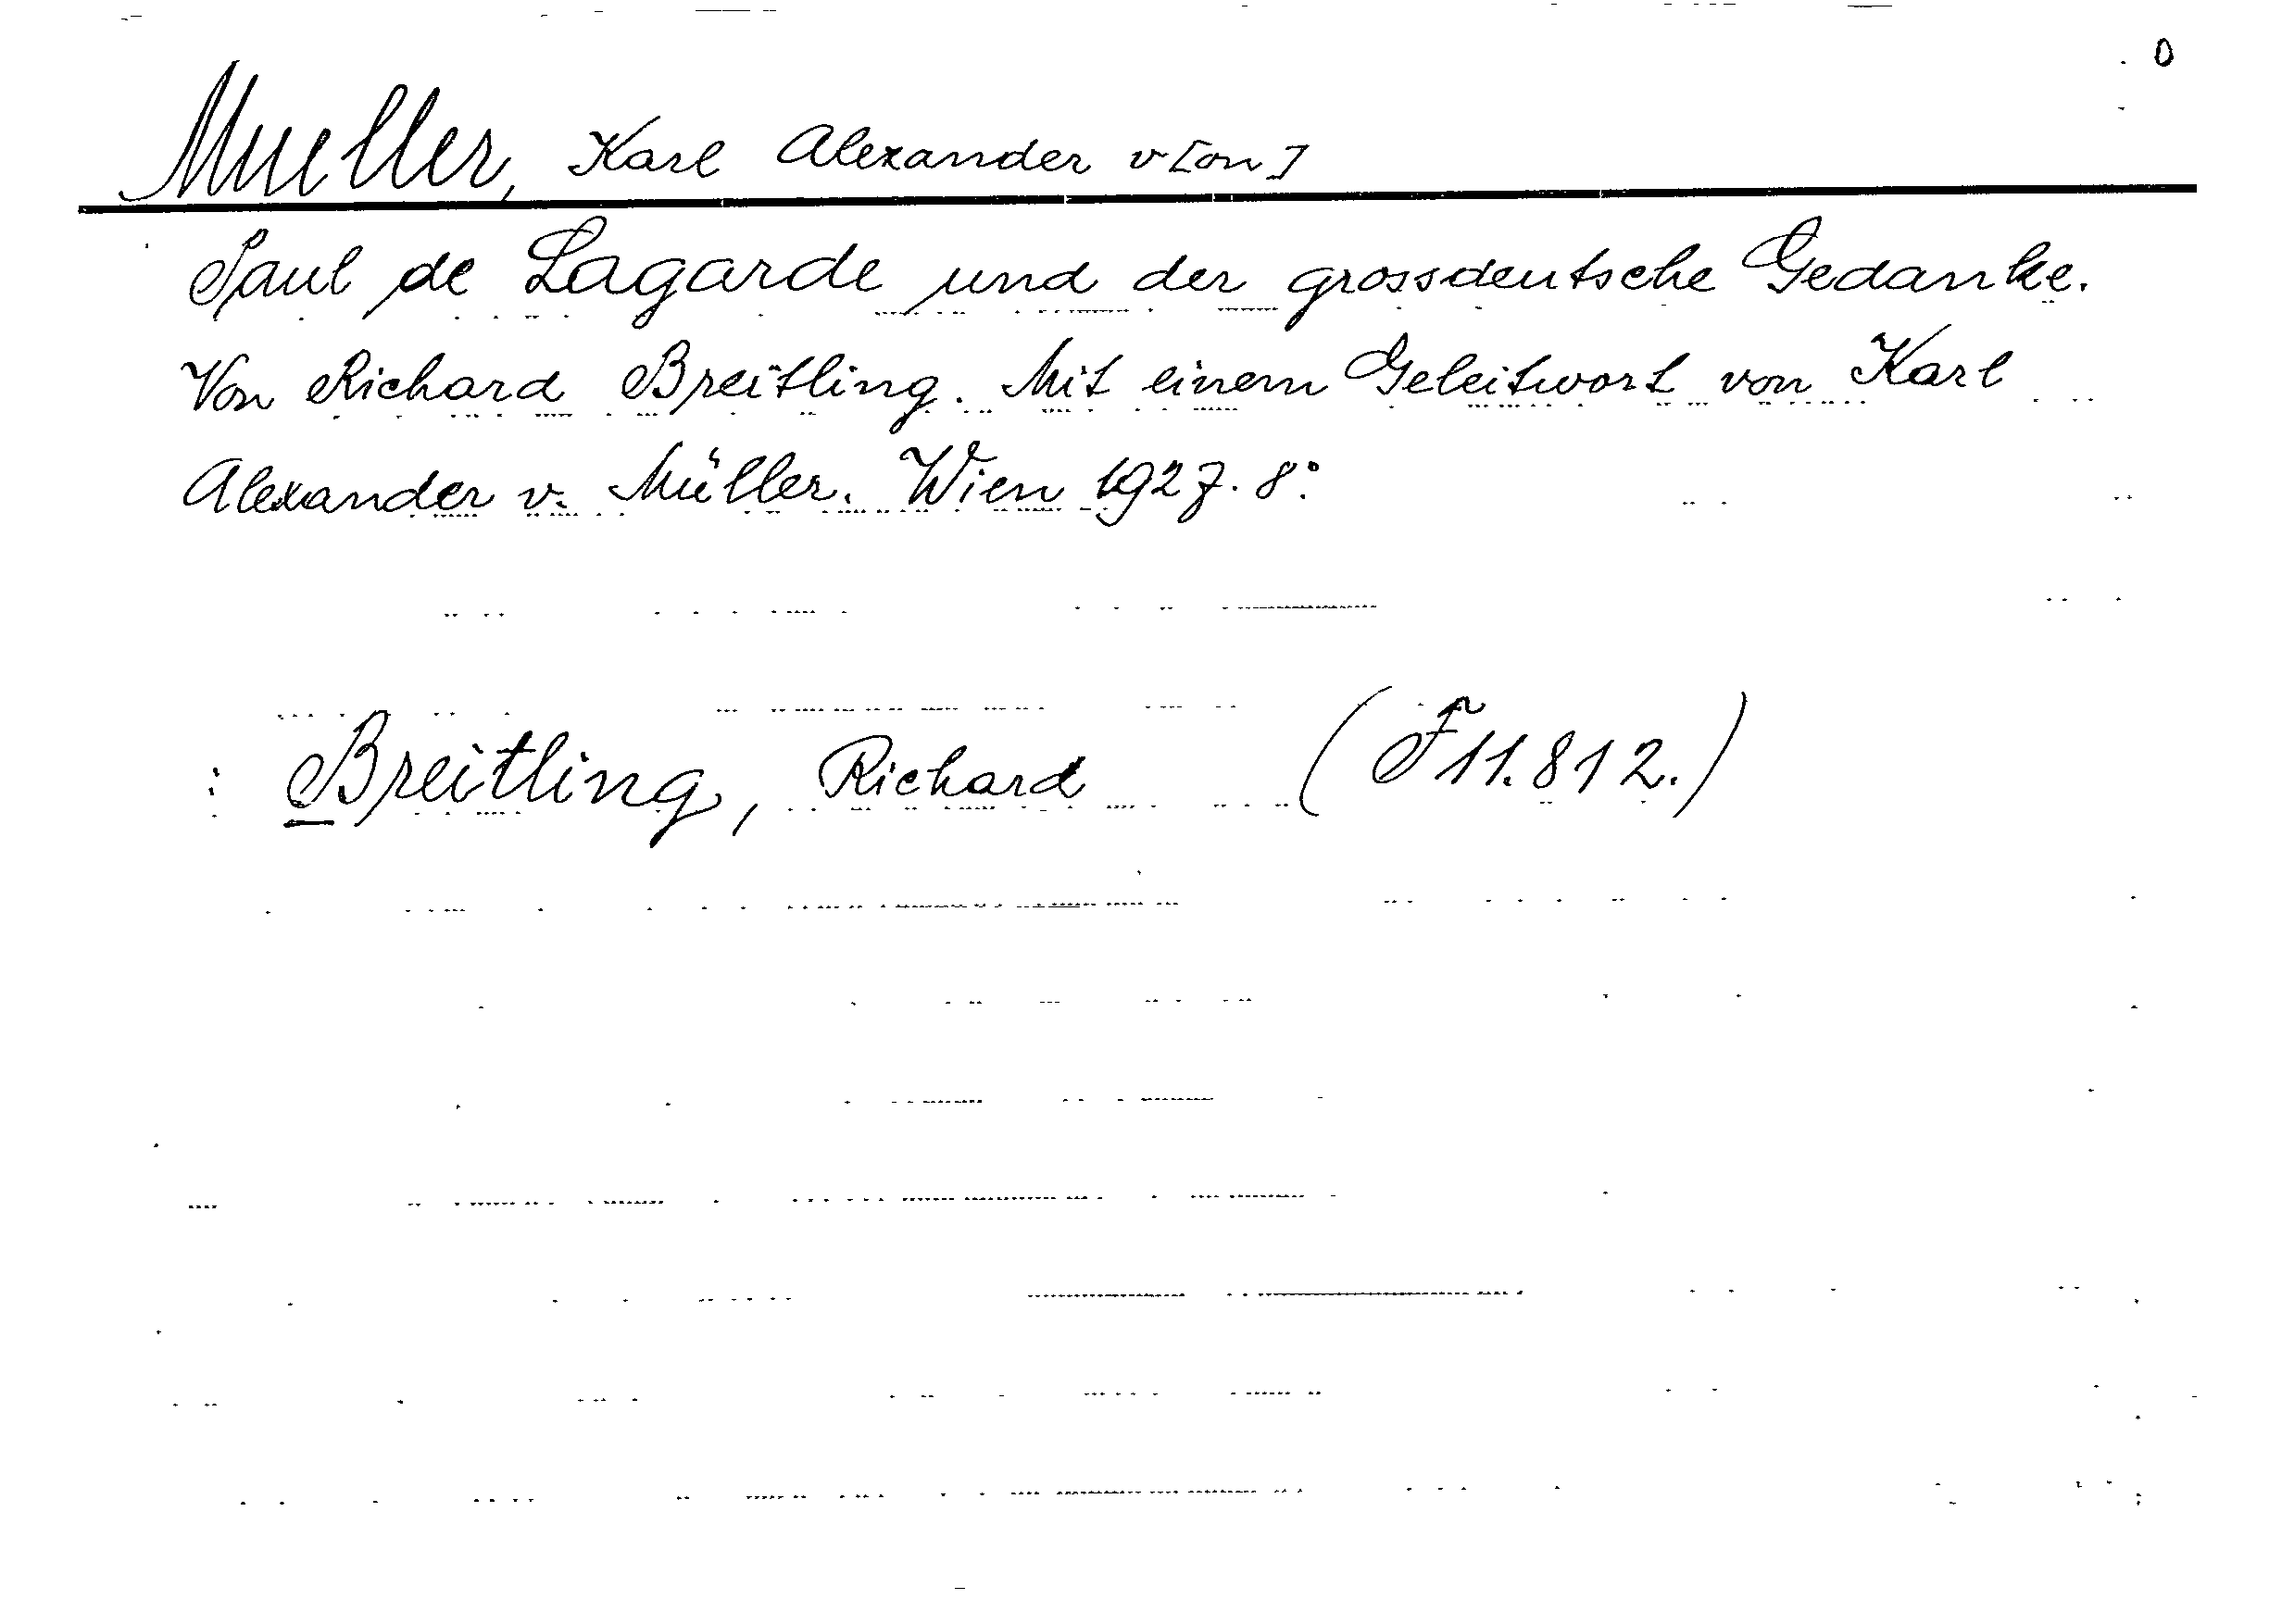 0
Mueller, Karl Alexander v[on]
Paul de Lagarde und der grossdeutsche Gedanke.
Von Richard Breitling. Mit einem Geleitwort von Karl
Alexander v. Müller. Wien 1927. 8°.
: Breitling, Richard (F 11.812.)